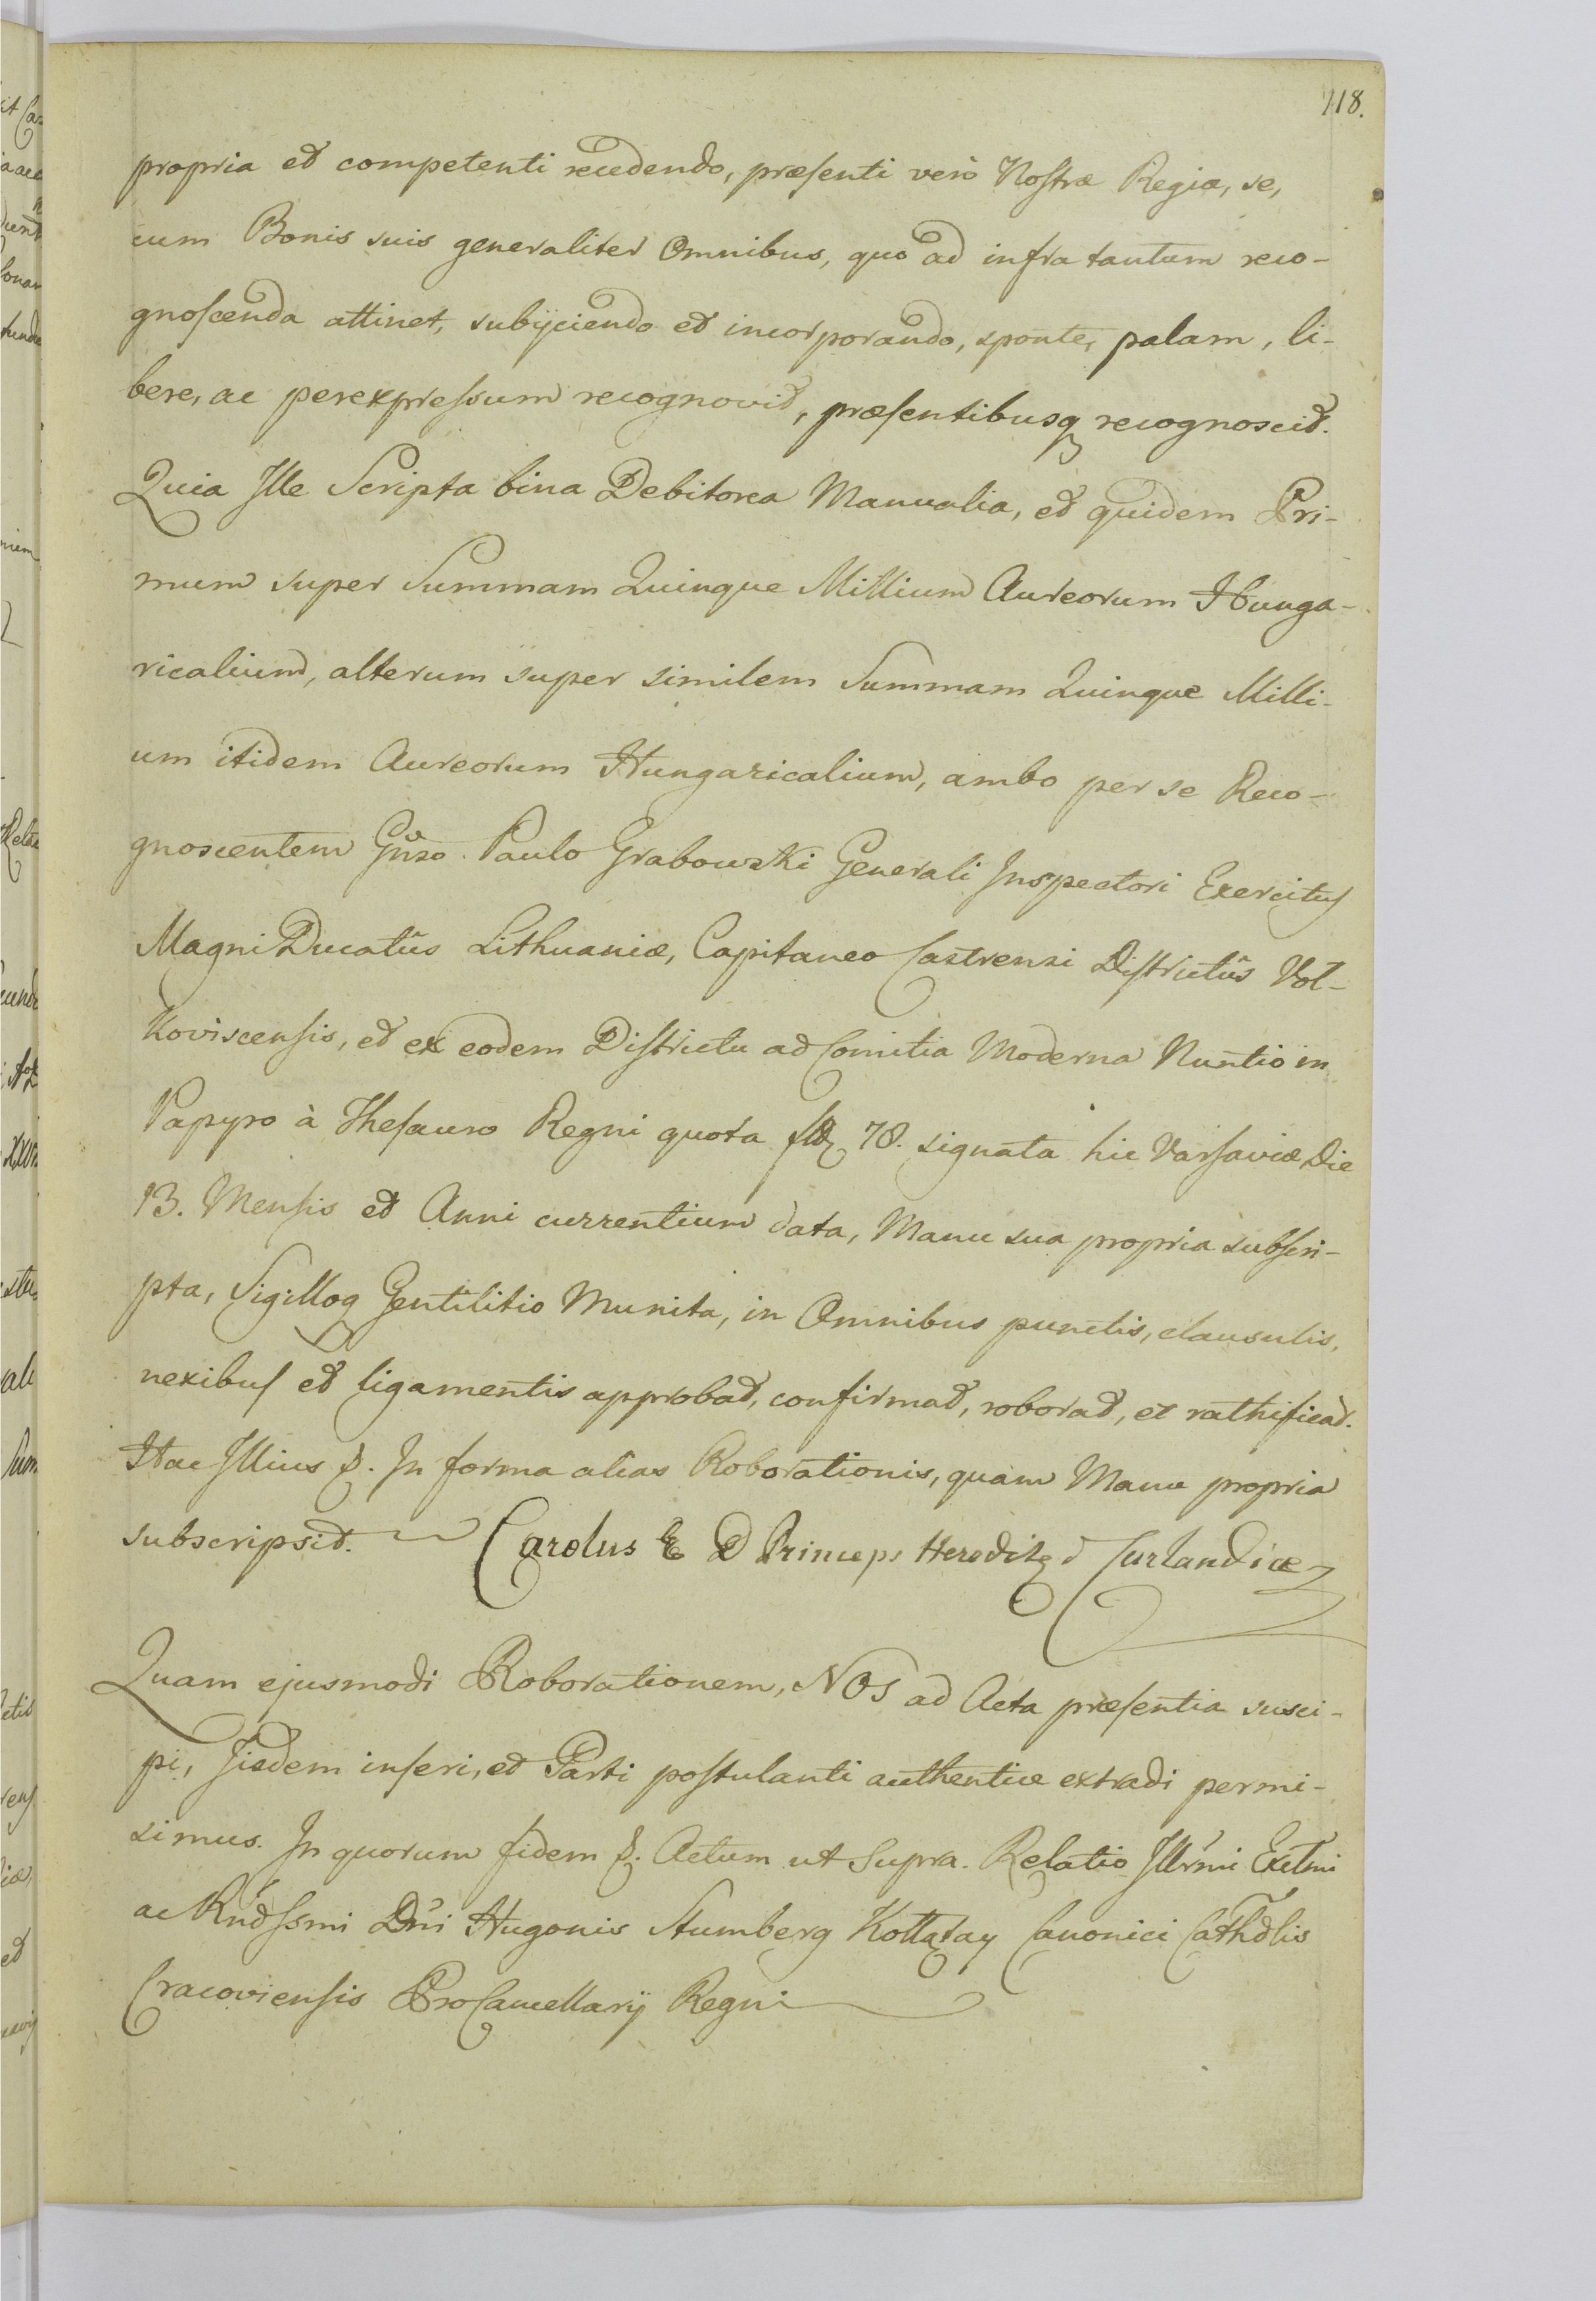 118.
propria et competenti recedendo, præsenti verò Nostræ Regiæ, se,
cum Bonis suis generaliter Omnibus, quo ad infra tantum reco-
gnoscenda attinet, subijciendo et incorporando, sponte, palam, li-
bere, ac perexpressum recognovit, præsentibusq recognoscit.
Quia Ille Scripta bina Debitorea Manualia, et quidem Pri-
mum super Summam Quinque Millium Aureorum Hunga-
ricalium, alterum super similem Summam Quinque Milli-
um itidem Aureorum Hungaricalium, ambo per se Reco-
gnoscentem Gñso. Paulo Grabowski Generali Inspectori Exercitus
Magni Ducatûs Lithuaniæ, Capitaneo Castrensi Districtûs Vol-
koviscensis, et ex eodem Districtu ad Comitia Moderna Nuntio in
Papyro à Thesauro Regni quota 78. signata hic Varsaviæ Die
13. Mensis et Anni currentium data, Manu sua propria subscri-
pta, Sigilloq Gentilitio Munita, in Omnibus punctis, clausulis,
nexibus et ligamentis approbat, confirmat, roborat, et rathificat.
Hac Illius &. In forma alias Roborationis, quam Manu propria
subscripsit. Carolus E D Princeps Heredit Curlandiæ
Quam ejusmodi Roborationem, NOS ad Acta præsentia susci-
pi, Iisdem inseri, et Parti postulanti authentice extradi permi-
simus. In quorum fidem &. Actum ut Supra. Relatio Illrmi Exctmi
ac Rndssmi Dñi Hugonis Stumberg Kołłątay Canonici Cathdlis
Cracoviensis ProCancellarij Regni